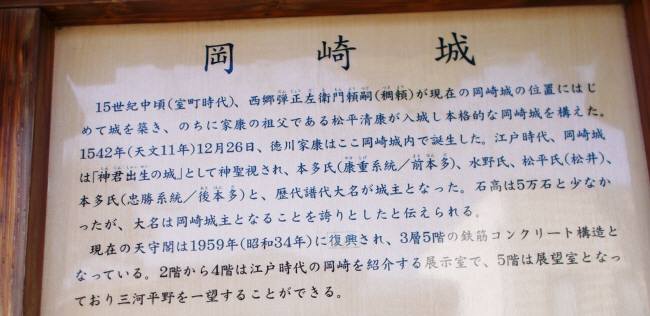 岡崎城
15世紀中頃(室町時代)、西郷弾正左衛門頼嗣(稠頼)が現在の岡崎城の位置にはじ
めて城を築き、のちに家康の祖父である松平清康が入城し本格的な岡崎城を構えた。
1542年(天文11年)12月26日、徳川家康はここ岡崎城内で誕生した。江戸時代、岡崎城
は「神君出生の城」として神聖視され、本多氏(康重系統／前本多)、水野氏、松平氏(松井)、
本多氏(忠勝系統／後本多)と、歴代譜代大名が城主となった。石高は5万石と少なか
ったが、大名は岡崎城主となることを誇りとしたと伝えられる。
現在の天守閣は1959年(昭和34年)に復興され、3層5階の鉄筋コンクリート構造と
なっている。2階から4階は江戸時代の岡崎を紹介する展示室で、5階は展望室となっ
ており三河平野を一望することができる。